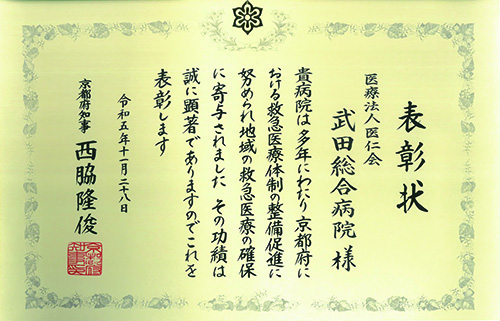 表彰状
医療法人医仁会
武田総合病院 様
貴病院は多年にわたり京都府に
おける救急医療体制の整備促進に
努められ地域の救急医療の確保
に寄与されました その功績は
誠に顕著でありますのでこれを
表彰します
令和五年十一月二十八日
京都府知事 西脇隆俊